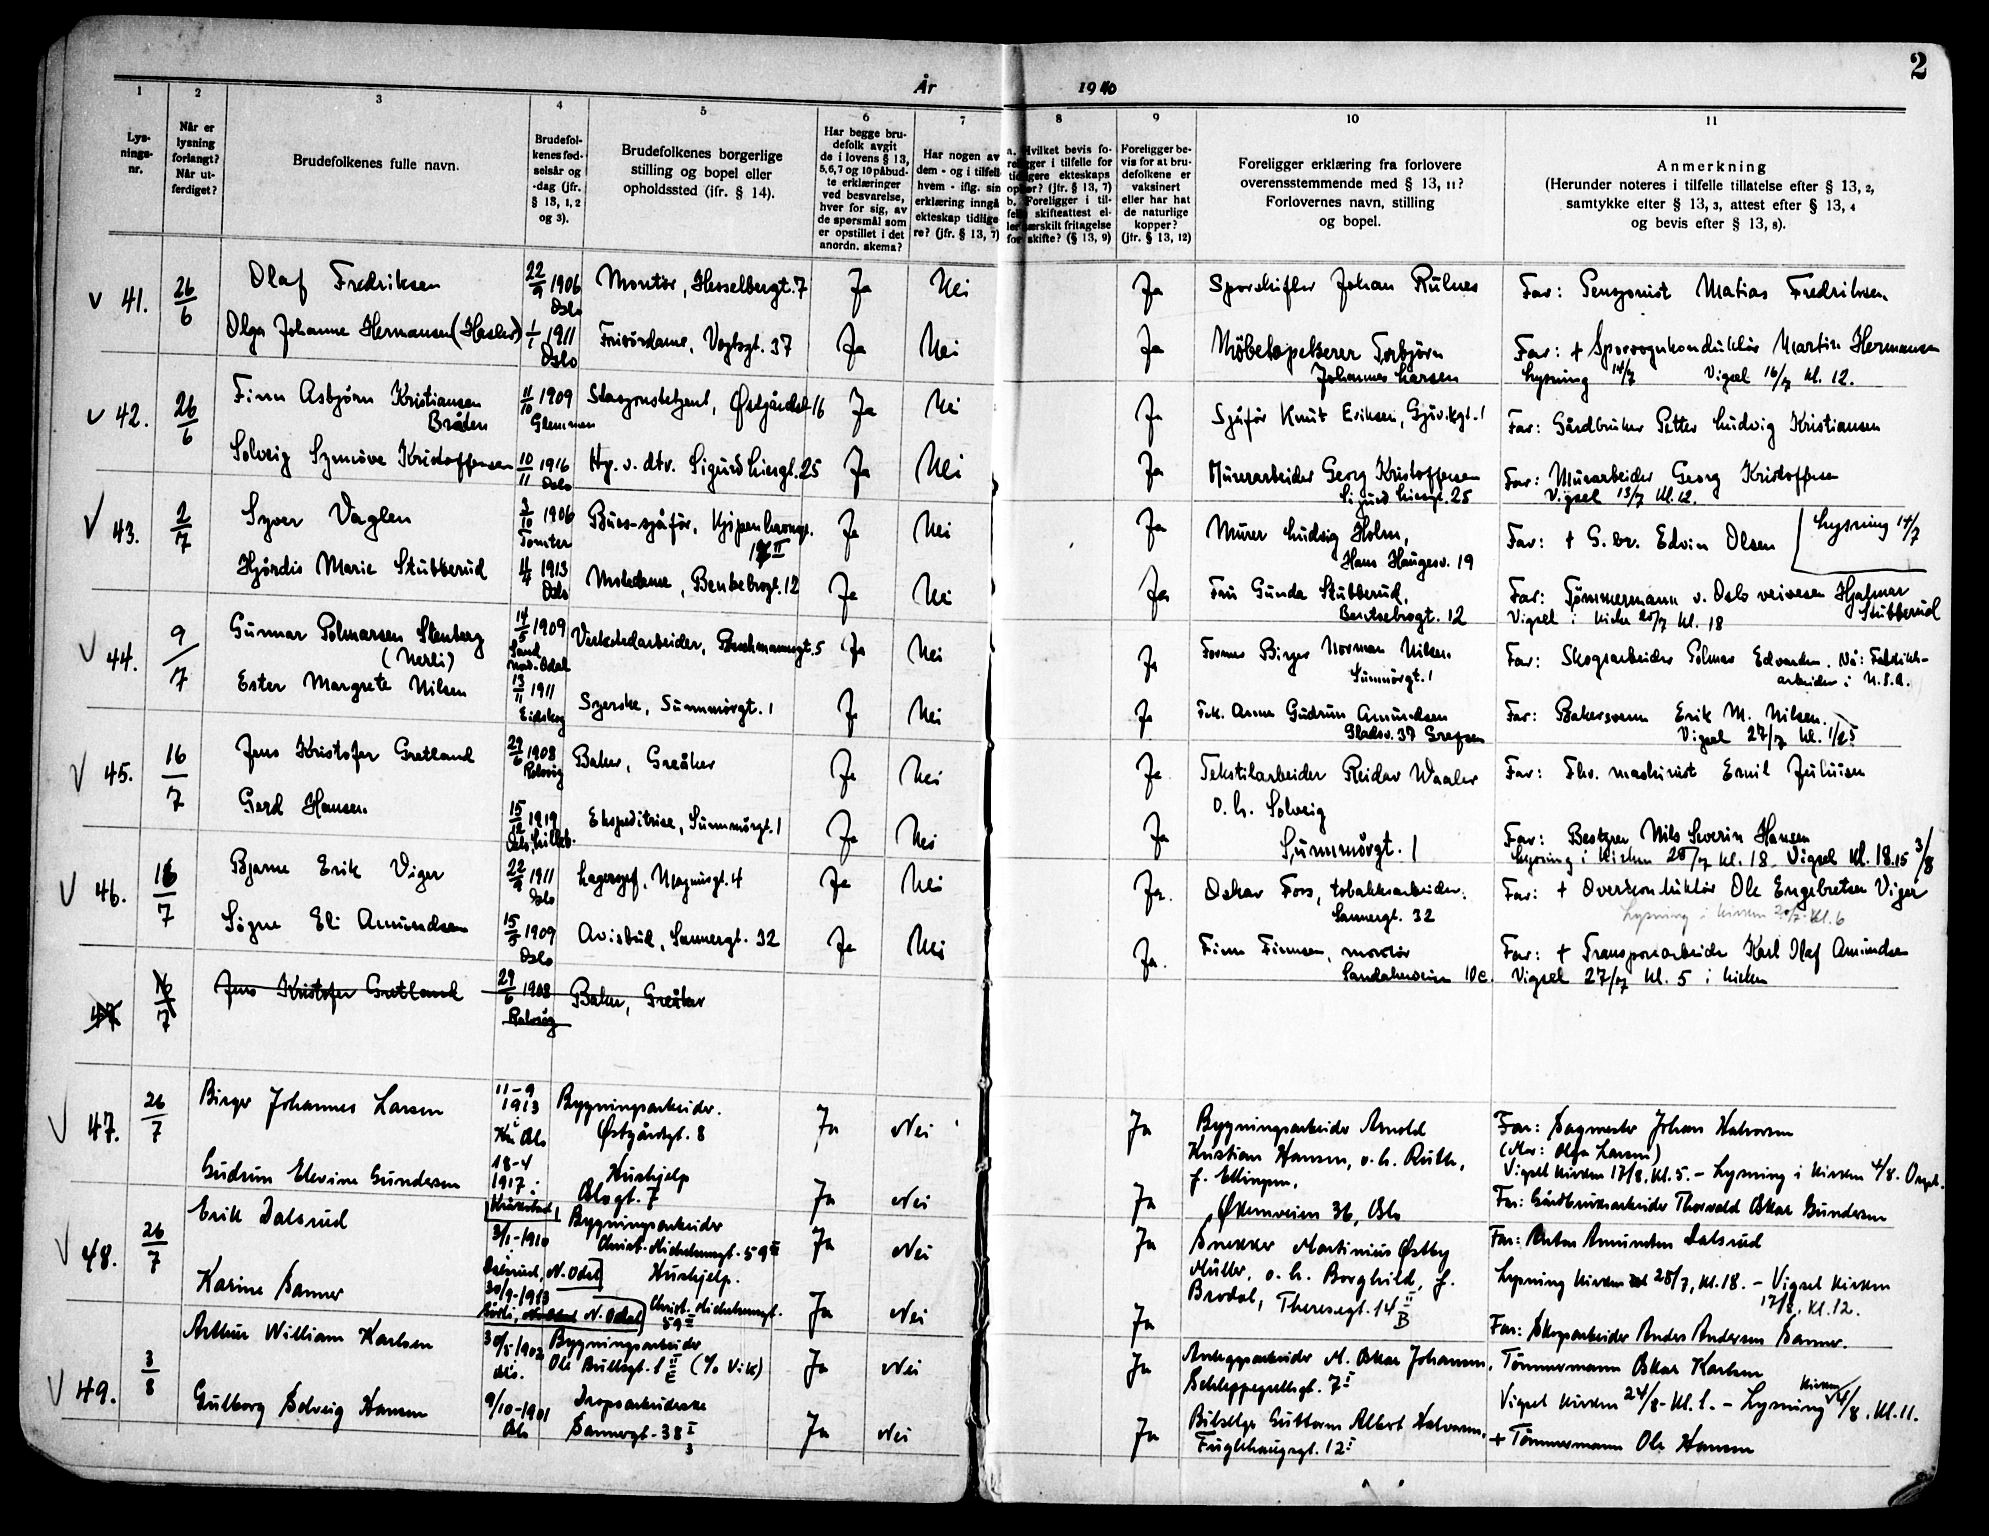 2
År 1940
1 2 3 4 5 6 7 8 9 10 11
Lys-
nings-
nr.
Når er
lysning
forlangt?
Når ut-
ferdiget?
Brudefolkenes fulle navn.
Brudefol-
kenes fød-
selsår og
-dag (jfr.
§ 13, 1, 2
og 3).
Brudefolkenes borgerlige
stilling og bopel eller
opholdssted (jfr. § 14).
Har begge bru-
defolk avgit
de i lovens § 13,
5,6,7 og 10 påbud-
te erklæringer
ved besvarelse,
hver for sig, av
de spørsmål som
er opstillet i det
anordn. skema?
Har nogen av
dem - og i tilfelle
hvem - iflg. sin
erklæring inngå
ekteskap tidlige-
re? (jfr. § 13, 7)
a. Hvilket bevis fo-
religger i tilfelle for
tidligere ekteskaps
ophør? (jfr. § 13, 7)
b. Foreligger i til-
felle skifteattest el-
ler særskilt fritagelse
for skifte? (§ 13, 9)
Foreligger be-
vis for at bru-
defolkene er
vaksinert
eller har hat
de naturlige
kopper?
(jfr. § 13, 12)
Foreligger erklæring fra forlovere
overensstemmende med § 13, 11?
Forlovernes navn, stilling
og bopel.
Anmerkning
(Herunder noteres i tilfelle tillatelse efter § 13, 2,
samtykke efter § 13, 3, attest efter § 13, 4
og bevis efter § 13, 8).
v 41. 26/6 Olaf Fredriksen 22/9 1906 Oslo Montør, Hesselbergt. 7 Ja Nei Ja Johan Rulnes Far: Pensjonist Matias Fredriksen
Olga Johanne Hermansen (Hasler) 1/1 1911 Oslo Frisørdame, Vogtsgt. 37 Ja Nei Ja Møbeltapetserer Torbjørn
Johannes Larsen
Far: + Sporvognkonduktør Martin Hermansen
Lysning 14/7 Vigsel 16/7 kl. 12.
v 42. 26/6 Finn Asbjørn Kristiansen
Bråten
11/10 1909 Glemmen Stasjonsbetjent, Østgårdsgt. 16 Ja Nei Ja Sjåfør Knut Eriksen, Gjøvikgt. 1 Far: Gårdbruker Petter Ludvig Kristiansen
Solveig Synnøve Kristoffersen 10/11 1916 Oslo Hp. v. dtv. Sigurd Liesgt. 25 Ja Nei Ja Murerarbeider Georg Kristoffersen
Sigurd Liesgt. 25
Far: Murarbeider Georg Kristoffersen
Vigsel 13/7 kl. 12.
V 43. 2/7 Syver Vaglen 3/10 1906 Tomter Buss-sjåfør, Kjøpenhavngt.
II
Ja Nei Ja Murer Ludvig Holm,
Hans Haugesv. 19
Far: + G.br. Edvin Olsen Lysning 14/7
Hjørdis Marie Stubberud 1913 Oslo Motedame, Bentsebrogt. 12 Ja Nei Ja Fru Gunda Stubberud,
Bentsebrogt. 12
Far: Tømmermann v. Oslo veivesen Hjalmar
Stubberud
Vigsel i kirke 20/7 kl. 18
V 44. 9/7 Gunnar Polmarsen Stenberg
(Nerli)
14/5 1909 Sand Nord-Odal Verkstedarbeider, Buchmannsgt. 5 Ja Nei Ja Former Birger Norman Nilsen.
Sunnmørgt. 1
Far: Skogsarbeider Polmar Edvardsen. Nå: Fabrikk-
arbeider i U.S.A.
Ester Margrete Nilsen 13/11 1911 Eidskog Syerske, Sunnmørgt. 1 Ja Nei Ja Frk. Anna Gudrun Amundsen
Gladsv. 37 Grefsen
Far: Bakersvenn Erik M. Nilsen.
Vigsel 27/7 kl. 1/2 5
V 45. 16/7 Jens Kristofer Gretland 29/6 1908 Rolvsøy Baker, Greåker Ja Nei Ja Tekstilarbeider Reidar Waaler
o. h. Solveig
Sunnmørgt. 1
Far: Fhv. maskinist Emil Juliusen
Gerd Hansen 15/12 1919 Oslo, Lilleb. Ekspeditrise, Sunnmørgt. 1 Ja Nei Ja Far: Bestyrer Nils Severin Hansen
Lysning i kirken 28/7 kl. 18. Vigsel kl. 18.15 3/8
V 46. 18/7 Bjarne Erik Viger 22/9 1911 Oslo Lagersjef, Magnusgt. 4 Ja Nei Ja. Oskar Fors, tobakksarbeider.
Sannergt. 32
Far: + Overkonduktør Ole Engebretsen Viger
Lysning i kirken kl. 6
Signe Eli Amundsen 15/5 1909 Oslo Avisbud, Sannergt. 32 Ja Nei Ja. Finn Finnsen, montør
Sandakerveien 10 c.
Far: + Transportarbeider Karl Olaf Amundsen
Vigsel 27/7 kl. 5 i kirken
47 16/7 Jens Kristofer Gretland 29/6 1908 Rolvsøy Baker, Greåker
V 47. 26/7 Birger Johannes Larsen 11-9 1913 Oslo Bygningsarbeider.
Østgårdsgt. 8
Ja Nei Ja Bygningsarbeider Arnold
Kristian Hansen, o.h. Ruth,
f. Ellingsen,
Økernveien 36, Oslo
Far: Sagmester Johan Halvorsen
(Mor: Olga Larsen)
Vigsel kirken 17/8. kl. 5. - Lysning i kirken 4/8.
Gudrun Elevine Gundersen 18-4 1917 Hushjelp
Oslogt. 7
Ja Nei Ja Far: Gårdbrukerarbeider Thorvald Oskar Gundersen
V 48. 26/7 Erik Dalsrud 3/1-1910 Dalsrud, N. Odal Bygningsarbeider
Christ. Michelsensgt. 59 II
Ja Nei Ja Snekker Martinius Østby
Müller, o. h. Borghild, f.
Brodal, Theresegt. 14 II B
Far: Anton Amundsen Dalsrud
Lysning kirken 28/7, kl. 18. - Vigsel kirken
17/8. kl. 12.
Karine Sanner 30/9-1913 N. Odal Hushjelp.
Christ. Michelsensgt.
59 II
Ja Nei Ja Far: Skogsarbeider Anders Andersen Sanner.
V 49. 3/8 Arthur William Karlsen 30/5-1902 Oslo. Bygningsarbeider
Ole Bullsgt. 1 II E (c/o Vik)
Ja Nei Ja Anleggsarbeider M. Oskar Johansen,
Schleppegrellsgt. 7 I
Tømmermann Oskar Karlsen
Vigsel kirken 24/8 - kl. 1. - Lysning kirken 4/8. kl. 11.
Gulborg Solveig Hansen 9/10-1901 Oslo Dropsarbeiderske
Sannergt. 38 I
3
Ja Nei Ja Guttorm Albert Halvorsen,
Fuglehauggt. 12 I
+ Tømmermann Ole Hansen